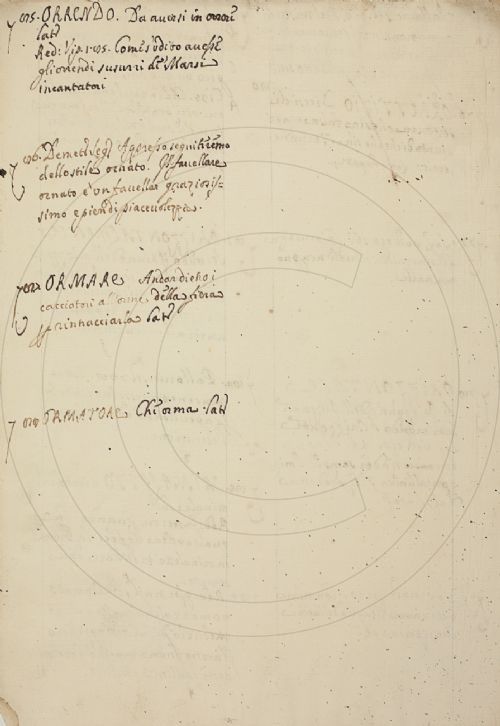 ors. ORRENDO. Da aversi in orrore
Lat:
Red: Vip. Come s'udito avesse
gli orrendi susurri de' Marsi
incantatori
Demetr: Segn: Appresso seguiremo
dello stile ornato. Il favellare
ornato è un favellar graziosis-
simo e pien di piacevolezza.
ORMARE Andar dietro i
cacciatori all'orme della fiera
per rintracciarla Lat:
ORMATORE Chi orma Lat: